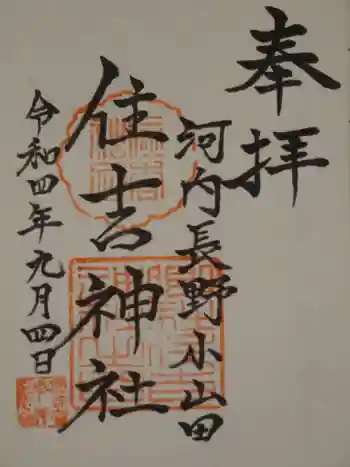 奉拝
河内長野小山田
住吉神社
令和四年九月四日